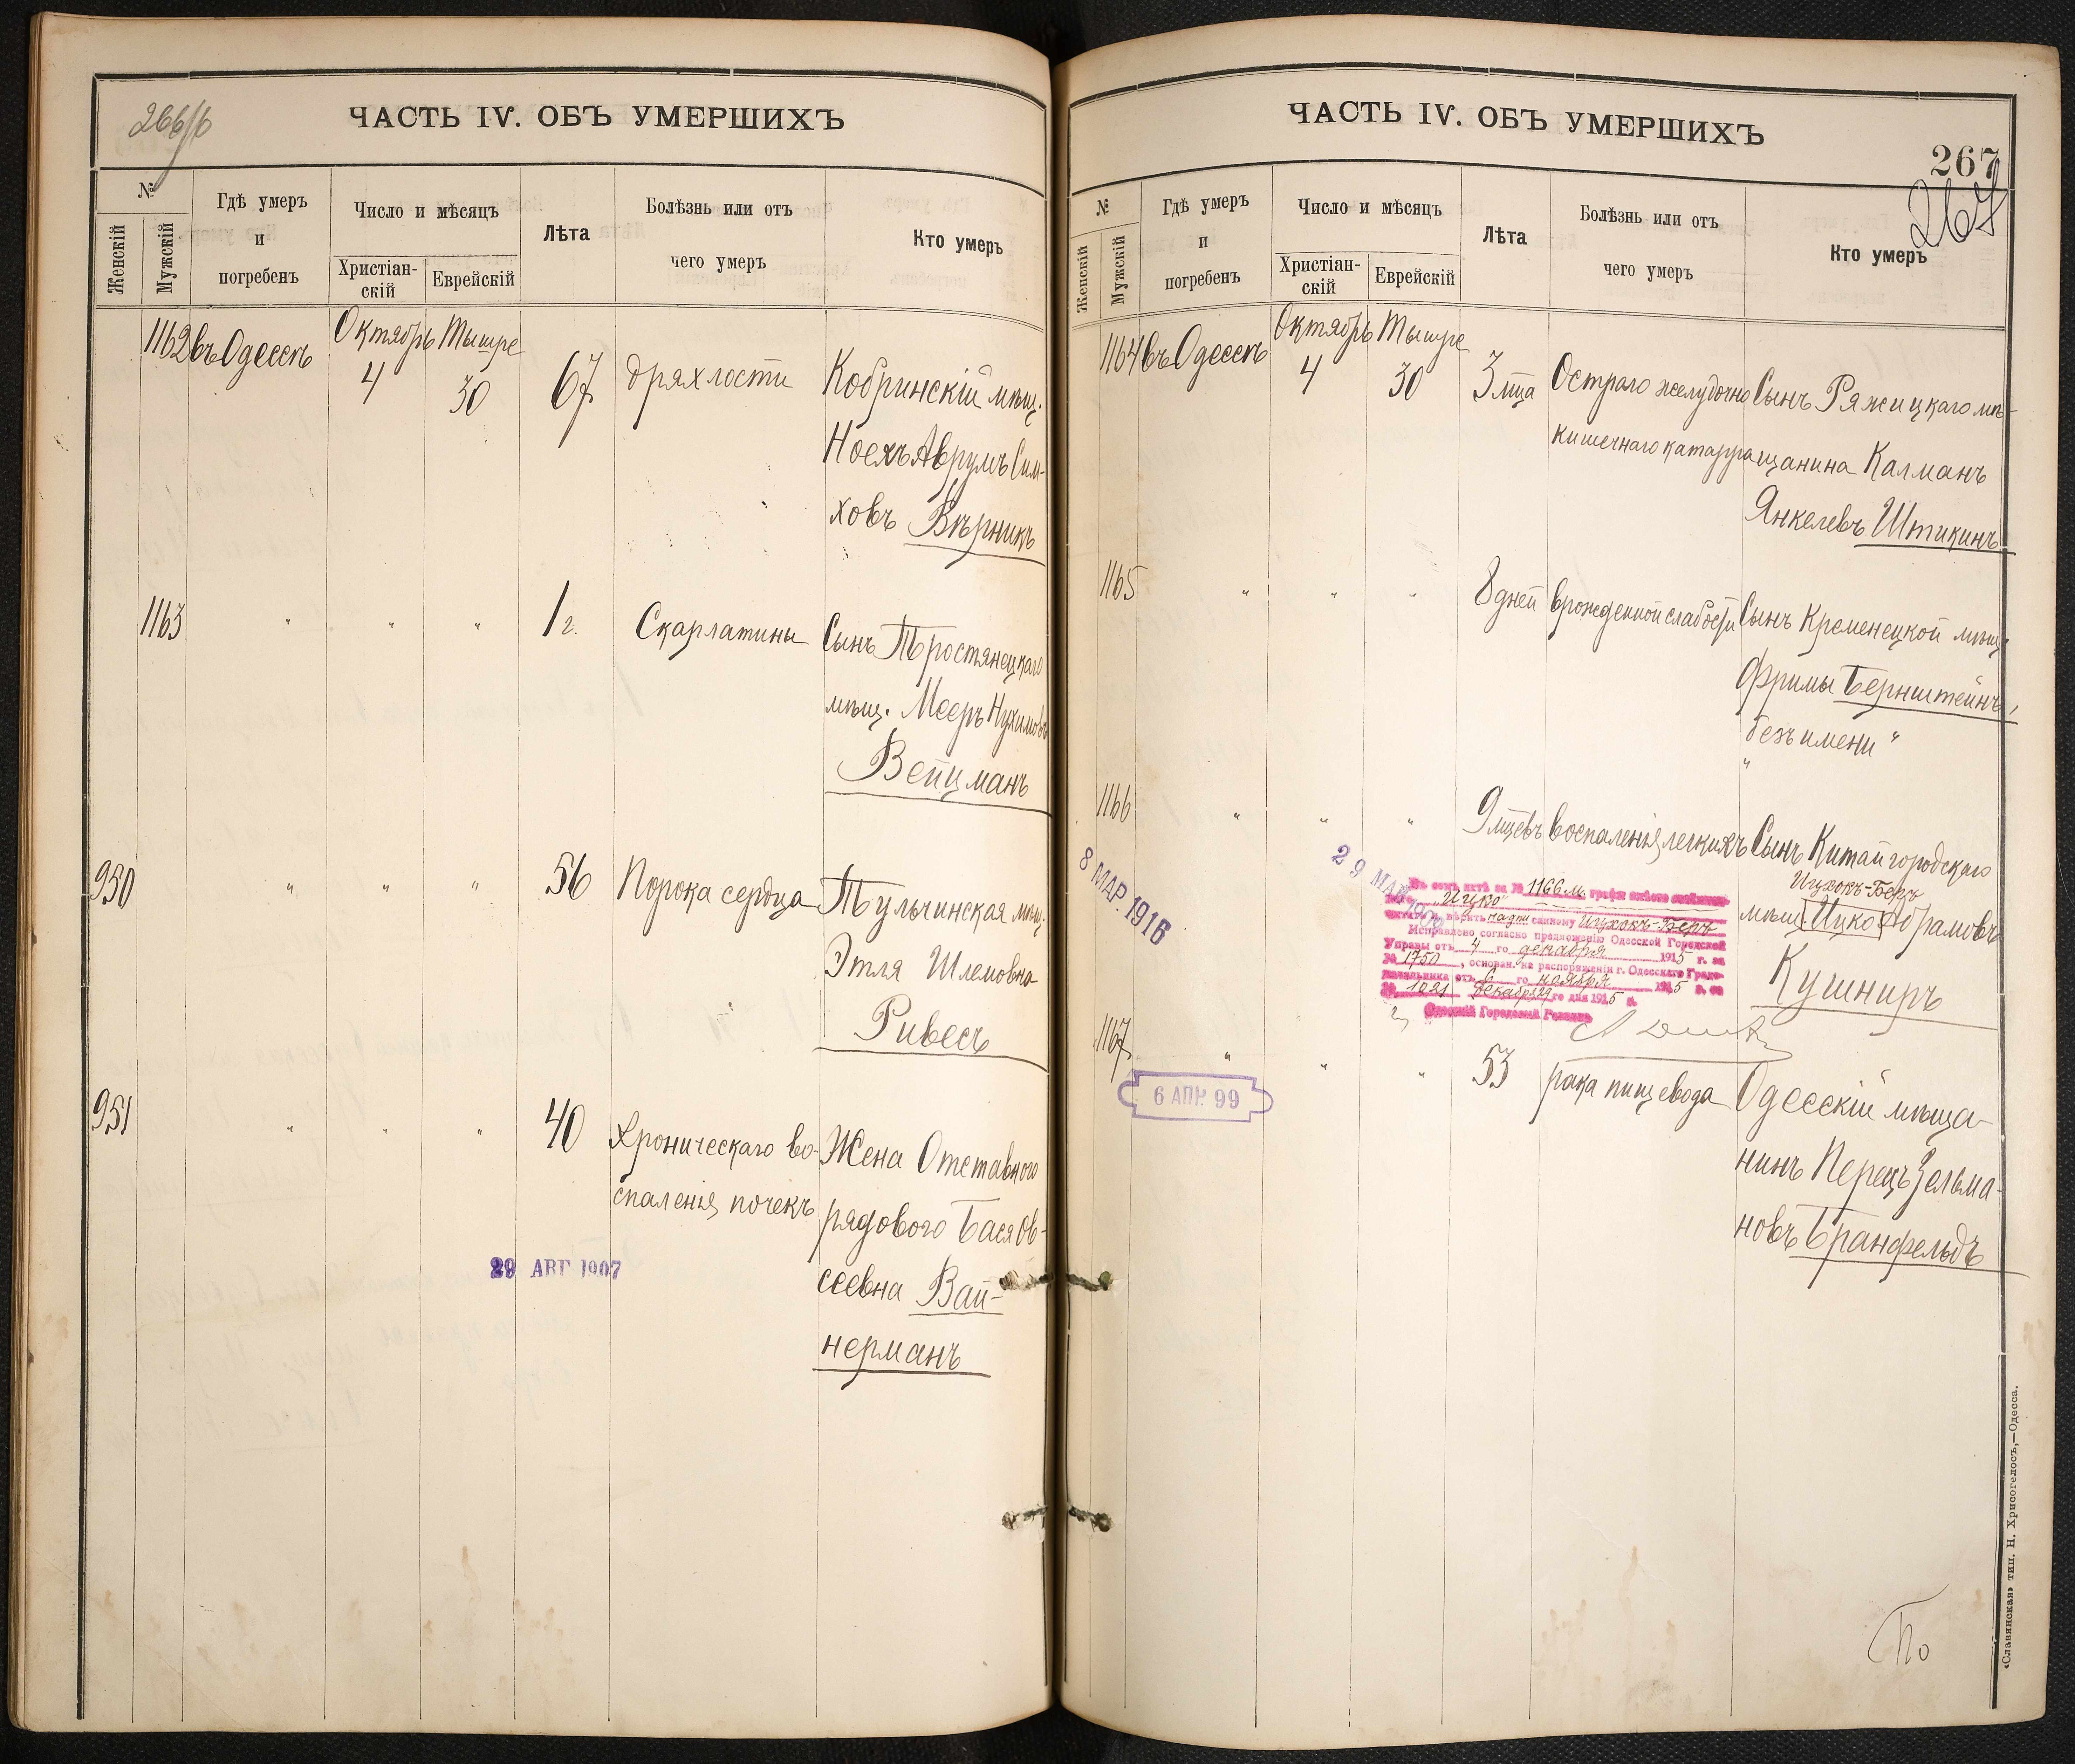 266/б
ЧАСТЬ IV. ОБЪ УМЕРШИХЪ
№
Женскій
Мужскій
Гдѣ умеръ
и
погребенъ
Число и мѣсяцъ
Христіан-
скій
Еврейскій
Лѣта
Болѣзнь или отъ
чего умеръ
Кто умеръ
1162 въ Одессѣ Октябрь 4 Тышре 30 67 дряхлости Кобринскій мѣщ.
Ноехъ Аврумъ Сим-
ховъ Вѣрникъ
1163 " " " 1 г. Скарлатины Сынъ Тростянецкаго
мѣщ. Мееръ Нухимовъ
Вейцманъ
950 " " " 56 Порока сердца Тульчинская мѣщ.
Этля Шлемовна
Ривесъ
951 " " " 40 Хроническаго во- Жена Отставного
спаленія почекъ рядового Бася Ов-
сеевна Вай-
нерманъ
29 АВГ 1907
ЧАСТЬ IV. ОБЪ УМЕРШИХЪ
267
267
№
Женскій
Мужскій
Гдѣ умеръ
и
погребенъ
Число и мѣсяцъ
Христіан-
скій
Еврейскій
Лѣта
Болѣзнь или отъ
чего умеръ
Кто умеръ
1164 въ Одессѣ Октябрь 4 Тышре 30 3 мца Остраго желудочно Сынъ Ряжицкаго мѣ-
кишечнаго катарра щанина Калманъ
Янкелевъ Штикинъ
1165 " " " 8 дней врожденной слабости Сынъ Кременецкой мѣщ.
Фримы Бернштейнъ,
"безъ имени"
1166 " " " 9 мцевъ воспаленія легкихъ Сынъ Китайгородскаго
Ицхокъ-Беръ
мѣщ. Ицко Абрамовъ
Кушниръ
8 МАР. 1916
29 МАЯ
Въ семъ актѣ за № 1166 м. графы вмѣсто
"Ицко"
читать и вѣрить надписанному Ицхокъ-Беръ
Исправлено согласно предложенію Одесской Городской
Управы отъ 4 го декабря 1915 г. за
№ 1750, основан. на распоряженіи г. Одесскаго Градо-
начальника отъ 6 го ноября 1915 г. за
№ 1021 Декабря 29 го дня 1915 г.
Одесскій Городовой Раввинъ
1167 " " " 53 рака пищевода Одесскій мѣща-
нинъ Перецъ Зельма-
новъ Бранфельдъ
6 АПР. 99
По
«Славянская» тип. Н. Хрисогелосъ,—Одесса.